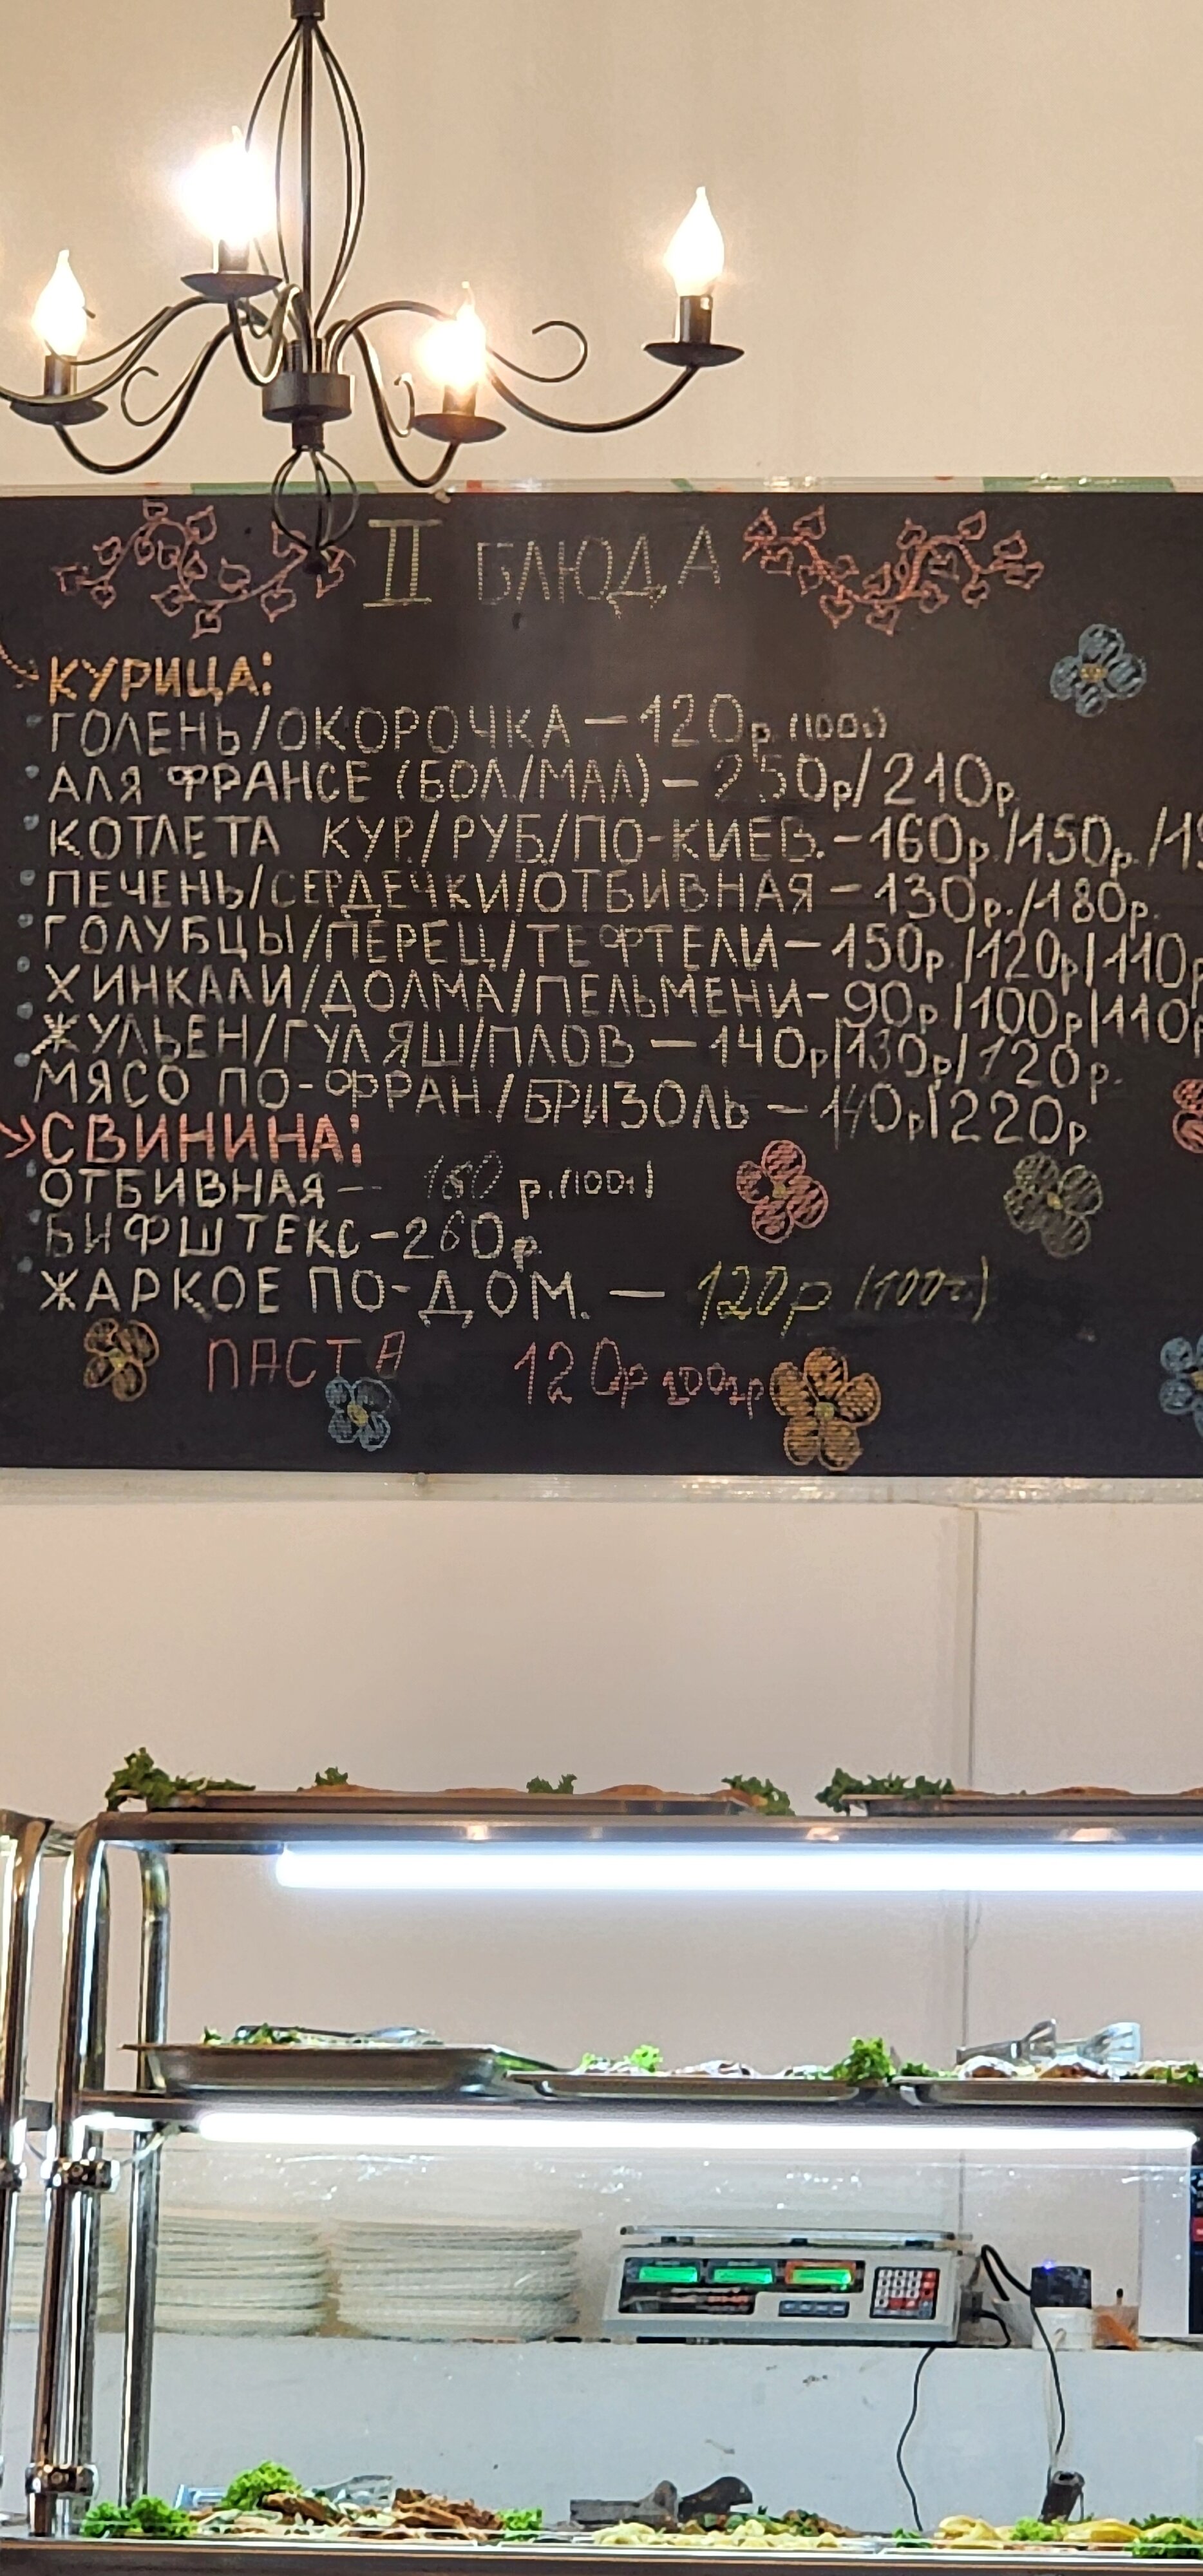 II БЛЮДА
КУРИЦА:
ГОЛЕНЬ/ОКОРОЧКА — 120р. (100г)
АЛЯ ФРАНСЕ (БОЛ/МАЛ) — 250р/210р.
КОТЛЕТА КУР./РУБ/ПО-КИЕВ. - 160р./150р./1
ПЕЧЕНЬ/СЕРДЕЧКИ/ОТБИВНАЯ — 130р./180р.
ГОЛУБЦЫ/ПЕРЕЦ/ТЕФТЕЛИ — 150р/120р/110р
ХИНКАЛИ/ДОЛМА/ПЕЛЬМЕНИ - 90р/100р/110р
ЖУЛЬЕН/ГУЛЯШ/ПЛОВ — 140р/130р/120р.
МЯСО ПО-ФРАН/БРИЗОЛЬ — 140р/220р
СВИНИНА:
ОТБИВНАЯ — р. (100г)
БИФШТЕКС - 260р.
ЖАРКОЕ ПО-ДОМ. — 120р (100г)
ПАСТА 120р 100гр